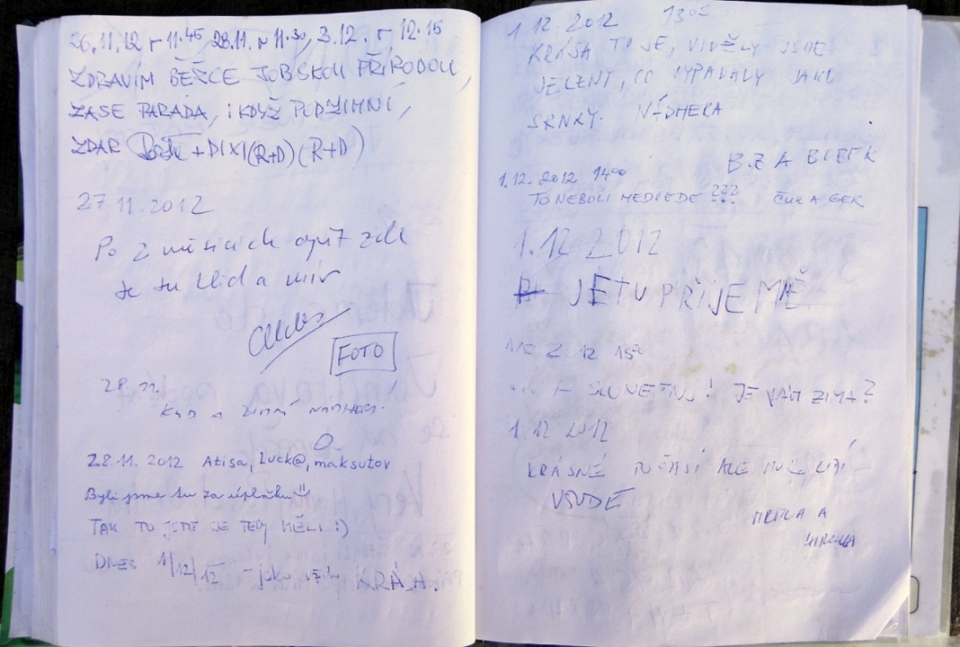 26.11.12 11.45, 28.11. 11.30, 3.12. 12.15
ZDRAVÍM BĚŽCE PŘÍRODOU,
ZASE PARÁDA, I KDYŽ PODZIMNÍ,
ZDAR + DIXI (R+D) (R+D)
27.11.2012
Po 2 měsících opět zde
je tu klid a mír
FOTO
28.11.
28.11.2012 Atisa, Luck@, maksutov
Byli jsme tu za úplňku
TAK TO JSTE SE TEDY MĚLI :)
DNES 1/12/12 - jako vždy KRÁSA.
1.12.2012 13
KRÁSA TO JE, VIDĚLY JSME
JELENY, CO VYPADALY JAKO
SRNKY. NÁDHERA
B.Z A
1.12.2012 14
TO NEBOLI MEDVEDE ??? ČUK A GEK
1.12 2012
JE TU PŘÍJEMĚ
12 15
... A SLUNEČNO! JE VÁM ZIMA?
1.12 2012
KRÁSNÉ POČASÍ ALE LIDÍ
VŠUDE
A